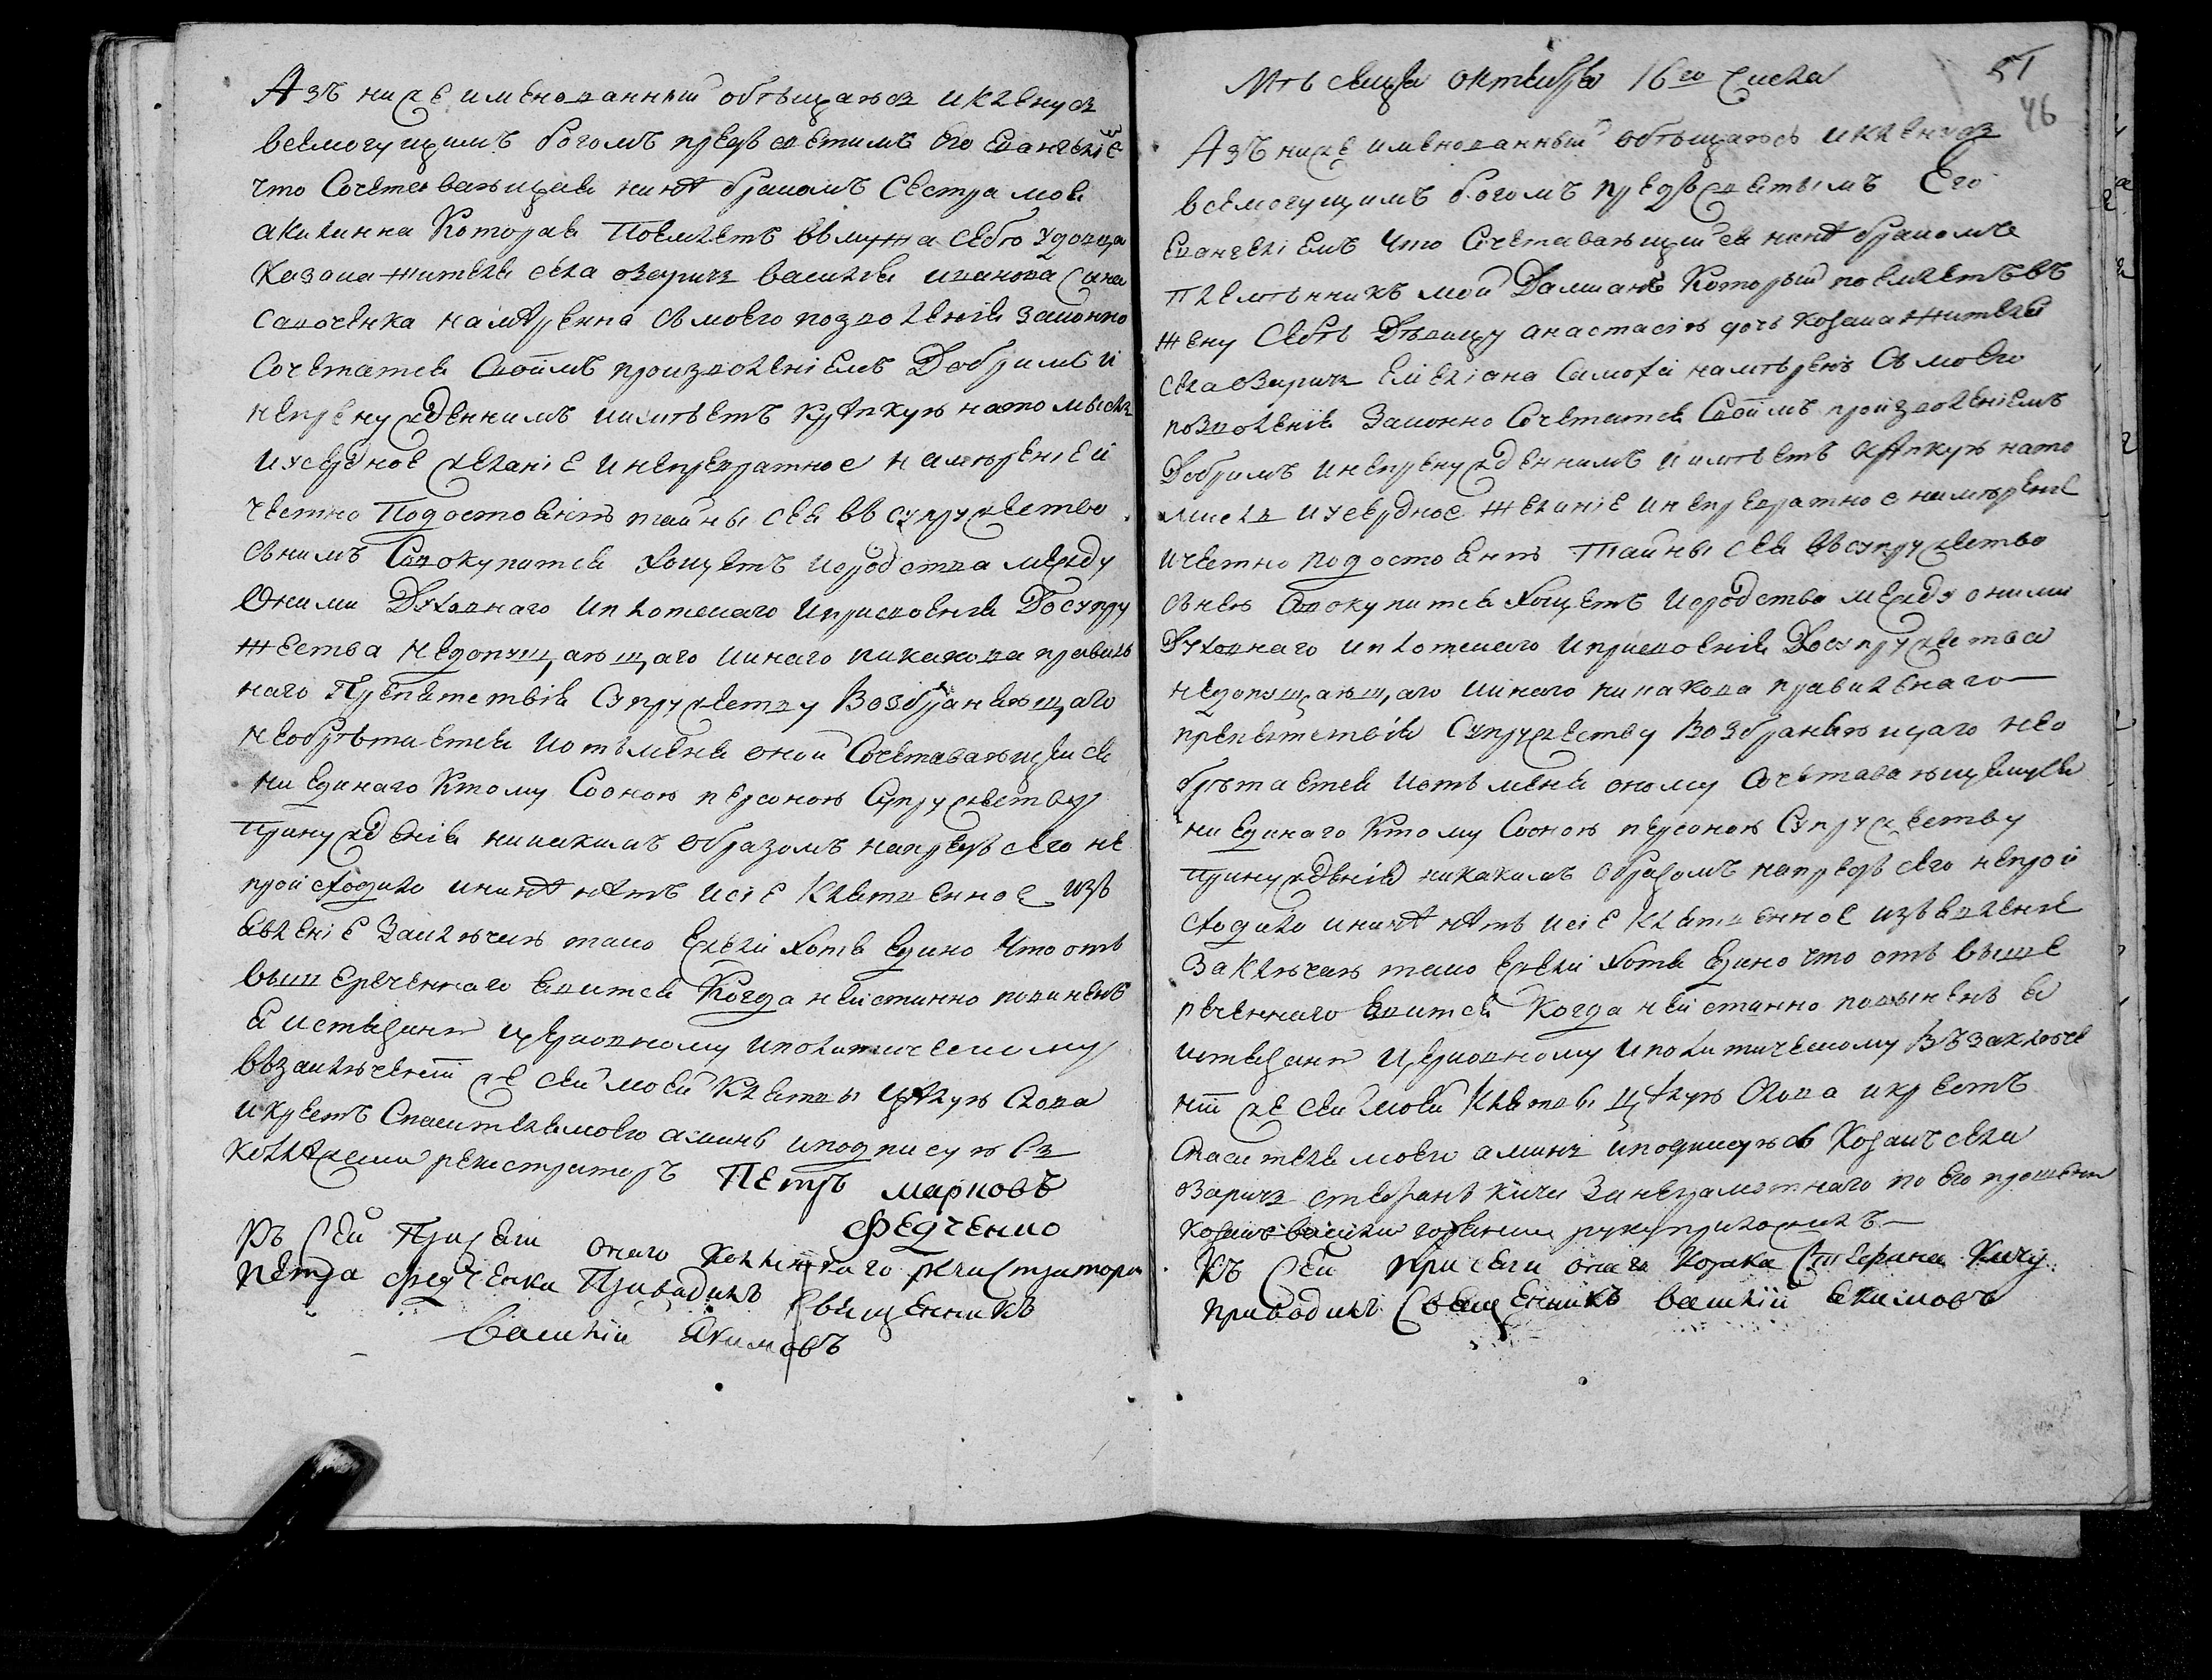 Азъ ниже именованный обѣщаюся и кленуся
всемогущимъ богомъ предъ святимъ его евангеліе
что сочетовающаяся нинѣ бракомъ сестра моя
акилинна которая поемлетъ въ мужа себѣ удовца
козака жителя села озаричъ василія иванова сина
савочѣнка намѣренна съ моего позволенія законно
сочетатся своимъ произволеніемъ добримъ и
непренужденнимъ и имѣетъ крѣпкую на то мысль
и усердное желаніе и непревратное намѣреніе и
честно по достоянію тайны сея въ супружество
с нимъ совокупится хощетъ и сродства между
оними духовнаго и плотскаго и присвоенія до супру
жества недопущающаго и инаго никакова правиль
наго препятствія супружеству возбраняющаго
необрѣтается и отъ мене оной сочетавающейся
ни единаго к тому со оною персоною супружеству
принужденія никакимъ образомъ напредъ сего не
происходило и нинѣ нѣтъ и сіе клятвенное изъ
явленіе заключаю тако ежели хотя едино что отъ
вышереченнаго явится когда неистинно повиненъ
я истязанію церковному и политическому
въ заключеніи же сей моей клятвы цѣлую слова
и крестъ спасителя моего аминь и подписуюся
коллѣжски регистраторъ Петръ марковъ
федченко
Къ сей присяги онаго коллежскаго регистратора
петра федченка приводилъ священникъ
василій якимовъ
51
46
Мѣсеца октября 16го числа
Азъ ниже именованный обѣщаюсь и кленуся
всемогущимъ богомъ предъ святымъ Его
евангеліемъ что сочетавающийся нинѣ бракомъ
племѣнникъ мой Дамианъ который поемлетъ въ
жену себѣ дѣвицу анастасію дочь козака жителя
села озаричъ еміліана самохи намѣренъ съ моего
позволенія законно сочетатся своимъ произволеніемъ
добримъ и непренужденнимъ и имѣетъ крѣпкую на то
мисль и усердное желаніе и непревратное намѣреніе
и честно по достоянію тайны сея въ супружество
с нею совокупится хощетъ и сродства между оними
духовнаго и плотскаго и присвоенія до супружества
недопущающаго и инаго никакова правиленаго
препятствія супружеству возбраняющаго нео
брѣтается и отъ мене оному сочетавающемуся
ни единаго к тому со оною персоною супружеству
принужденія никакимъ образомъ напредъ сего непрои
сходило и нинѣ нѣтъ и сіе клятвенное изъявленіе
заключаю тако ежели хотя едино что отъ выше
реченнаго явится когда неистинно повыненъ я
истязанію церковному и политическому въ заключе
ніи же сей моей клятвы цѣлую слова и крестъ
спасителя моего аминь и подписуюсь козакъ села
озаричъ стефанъ кичи за неграмотнаго по его прошенію
козакъ василій руку приложилъ
Къ сей присяги онаго козака стефана кичу
приводилъ священникъ василій якимовъ